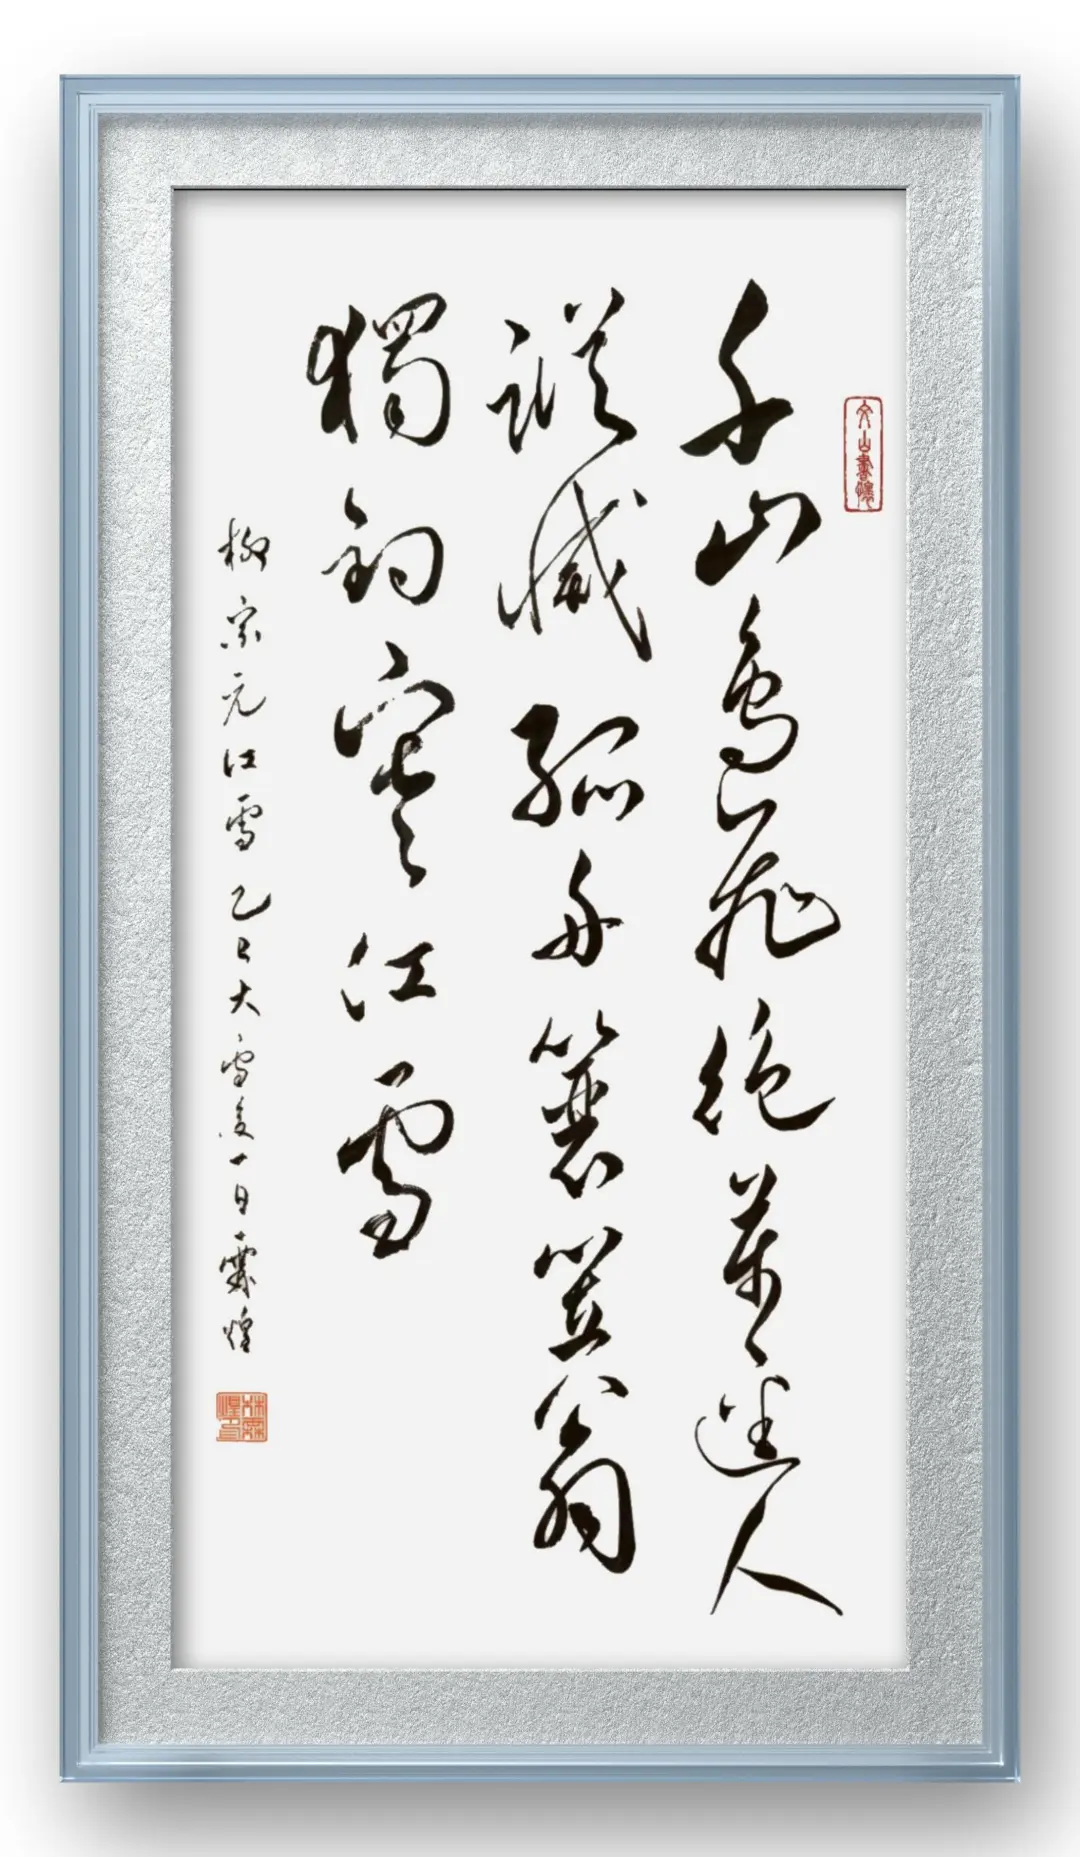 千山鳥飛絕萬逕人
蹤滅孤舟簑笠翁
獨釣寒江雪
柳宗元江雪乙巳大雪後一日霖煌